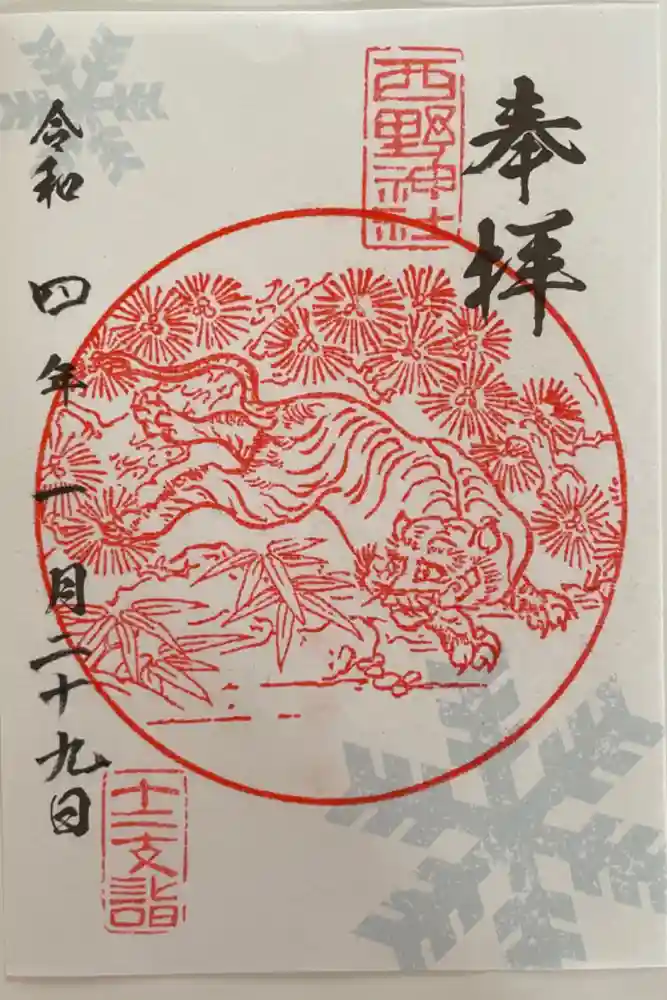 奉拝
西野神社
令和四年一月二十九日
十二支詣